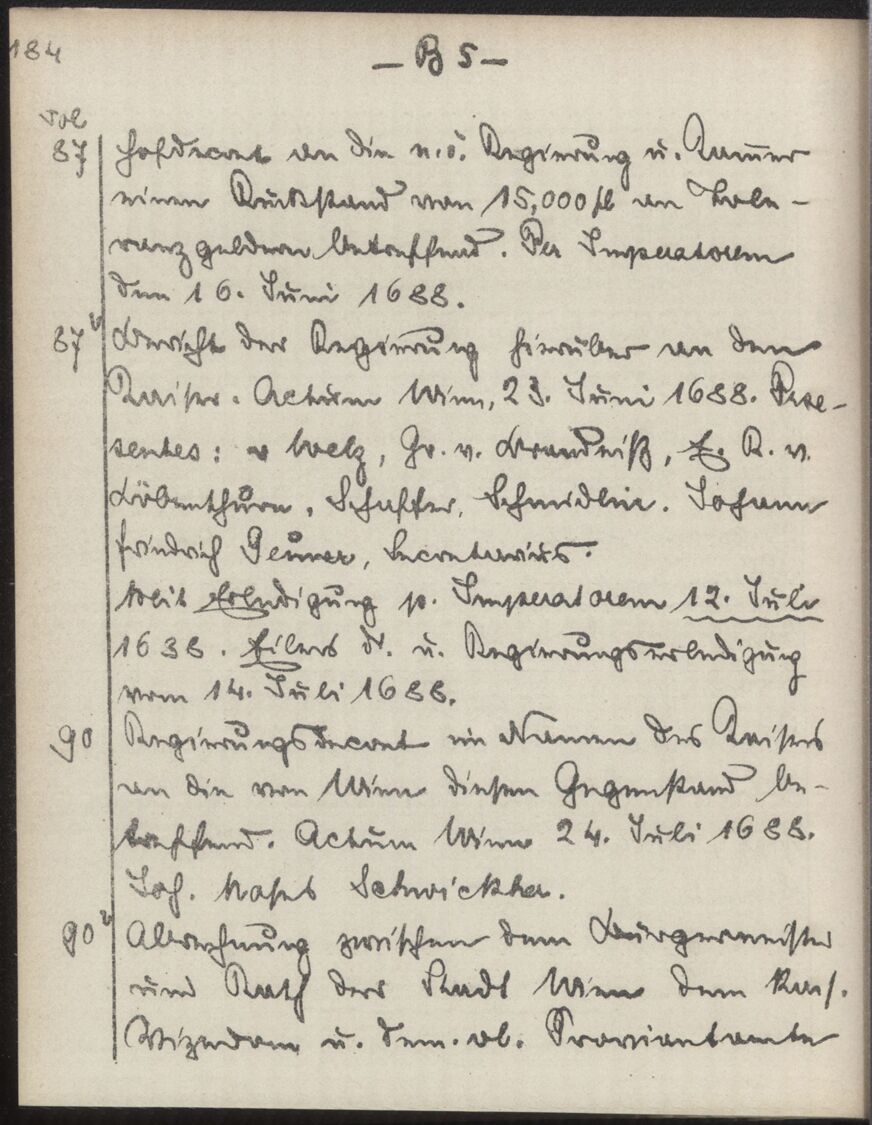 184
– B 5 –
Fol
87 Hofdecret an die n.ö. Regierung u. Kam̅er
einen Rückstand von 15,000 fl an Tole-
ranzgeldern betreffend. Per Imperatorem
den 16. Juni 1688.
87v Bericht der Regierung hierüber an den
Kaiser. Actum Wien, 23. Juni 1688. Prae-
sentes: v Welz, Gr. v. Brandniß, R. v.
Löbenthurn, Schaffer, Schmidlin. Johann
Friedrich Secretarius.
Mit Erledigung p. Imperatorem 12. Juli
1688. Eilers d. u. Regierungserledigung
vom 14. Juli 1688.
90 Regierungsdecret im Namen des Kaisers
an die von Wien diesen Gegenstand be-
treffend. Actum Wien 24. Juli 1688.
Joh. Moses Schwickha.
90v Abrechnung zwischen dem Bürgermeister
und Rath der Stadt Wien dem kais.
Vizedom u. dem. ob. Proviantamte